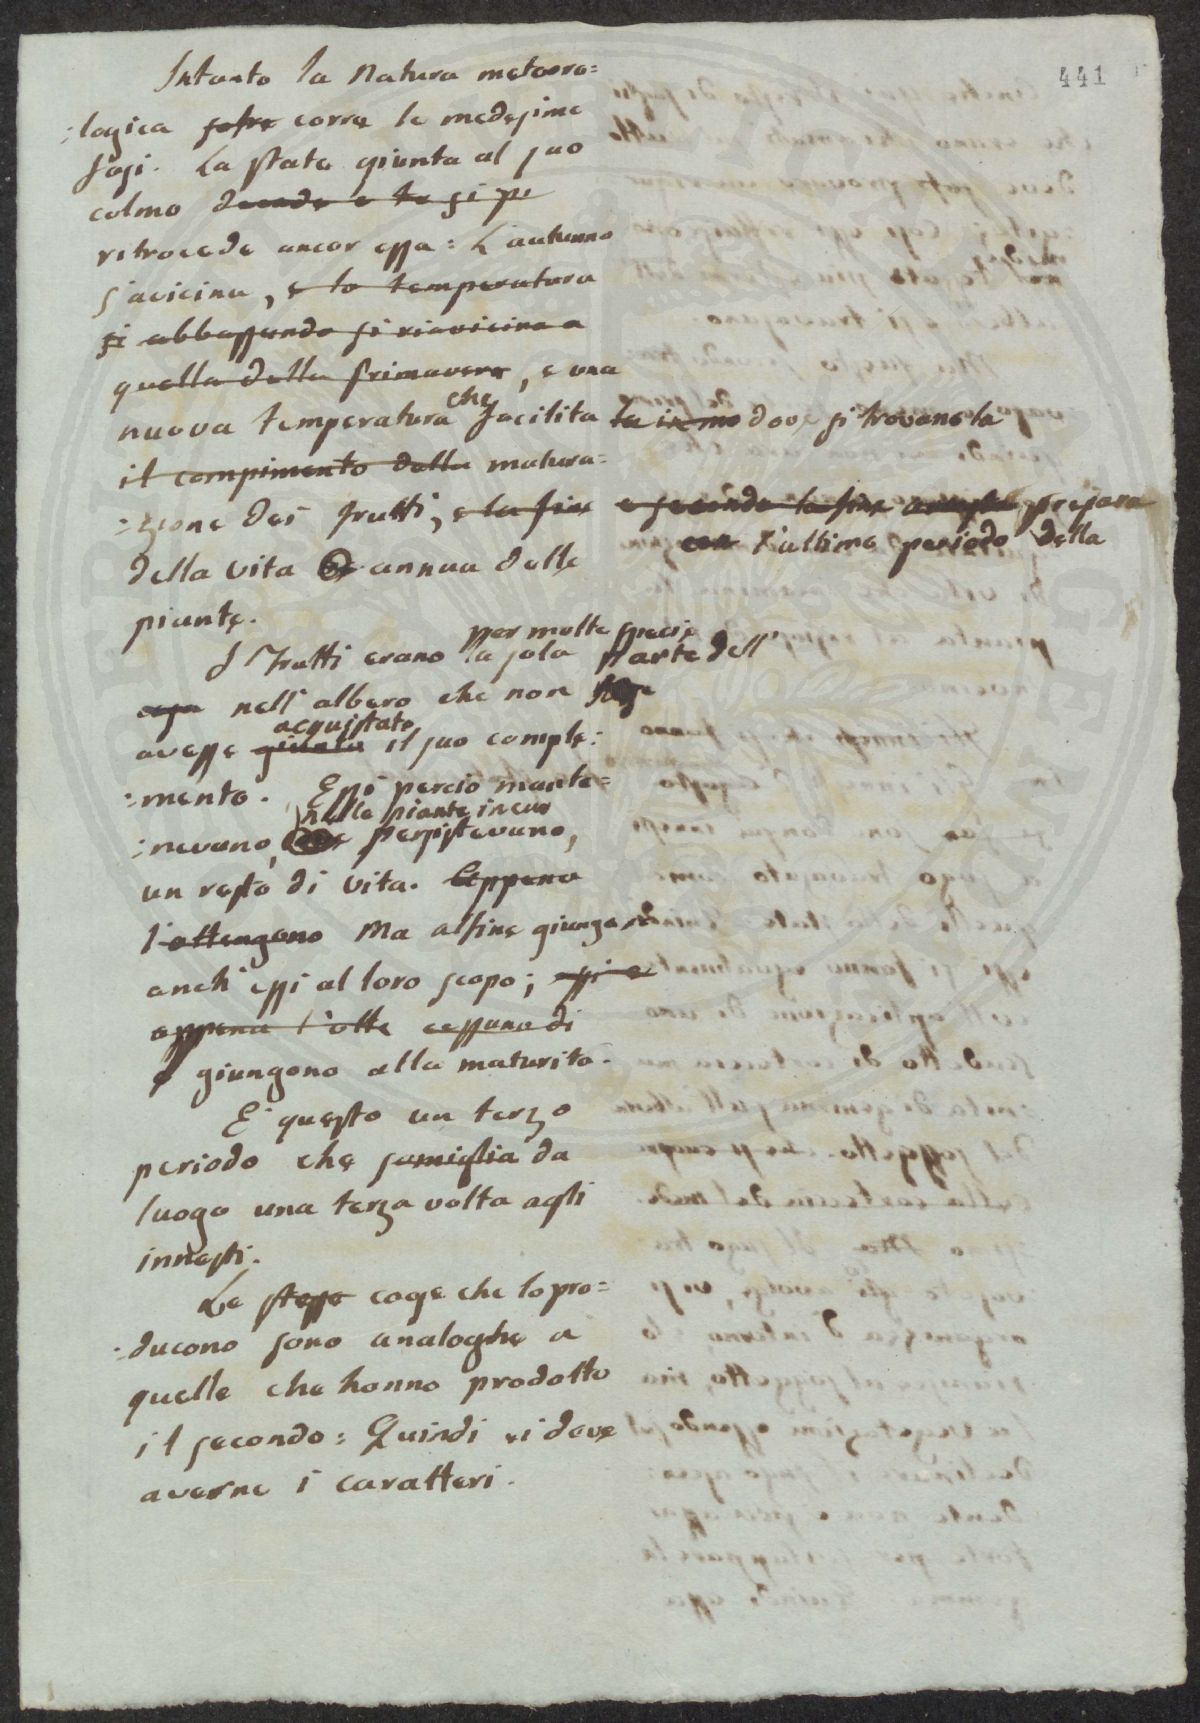 441
Intanto la Natura meteoro=
:logica sofre corre le medesime
fasi. La state giunta al suo
colmo decade e la si pe
retrocede ancor essa: L'autunno
s'avicina, e la temperatura
si abbassando si riavicina a
quella della Primavera, e una
nuova temperatura che facilita la in mo dove si trovano la
il compimento della matura=
:zione dei frutti, e la fine e secondo la fine prepara
con l'ultimo periodo della
della vita annua delle
piante.
per molte specie
I Frutti erano la sola parte dell'
nell'albero che non
acquistato
avesse giunto il suo comple:
:mento. Essi perciò mante=
nelle piante in cui
:nevano, persistevano,
un resto di vita. Appena
l'ottengono Ma alfine giungendo
anch'essi al loro scopo; essi e
appena l'otte cessano di
e giungono alla maturità.
E' questo un terzo
periodo che somiglia da
luogo una terza volta agli
innesti.
Le stesse cose che lo pro=
:ducono sono analoghe a
quelle che hanno prodotto
il secondo: Quindi si deve
averne i caratteri.